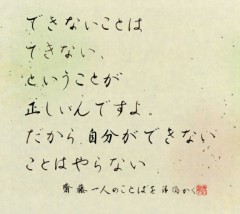 できないことは
できない、
ということが
正しいんですよ。
だから、自分ができない
ことはやらない
齋藤一人のことばを
かく